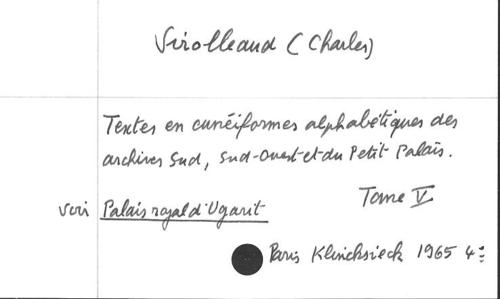 Virolleaud (Charles)
Textes en cunéiformes alphabétiques des
archives Sud, Sud-Ouest et du Petit Palais.
Tome V
voir Palais royal d'Ugarit
Paris Klincksieck 1965 4=